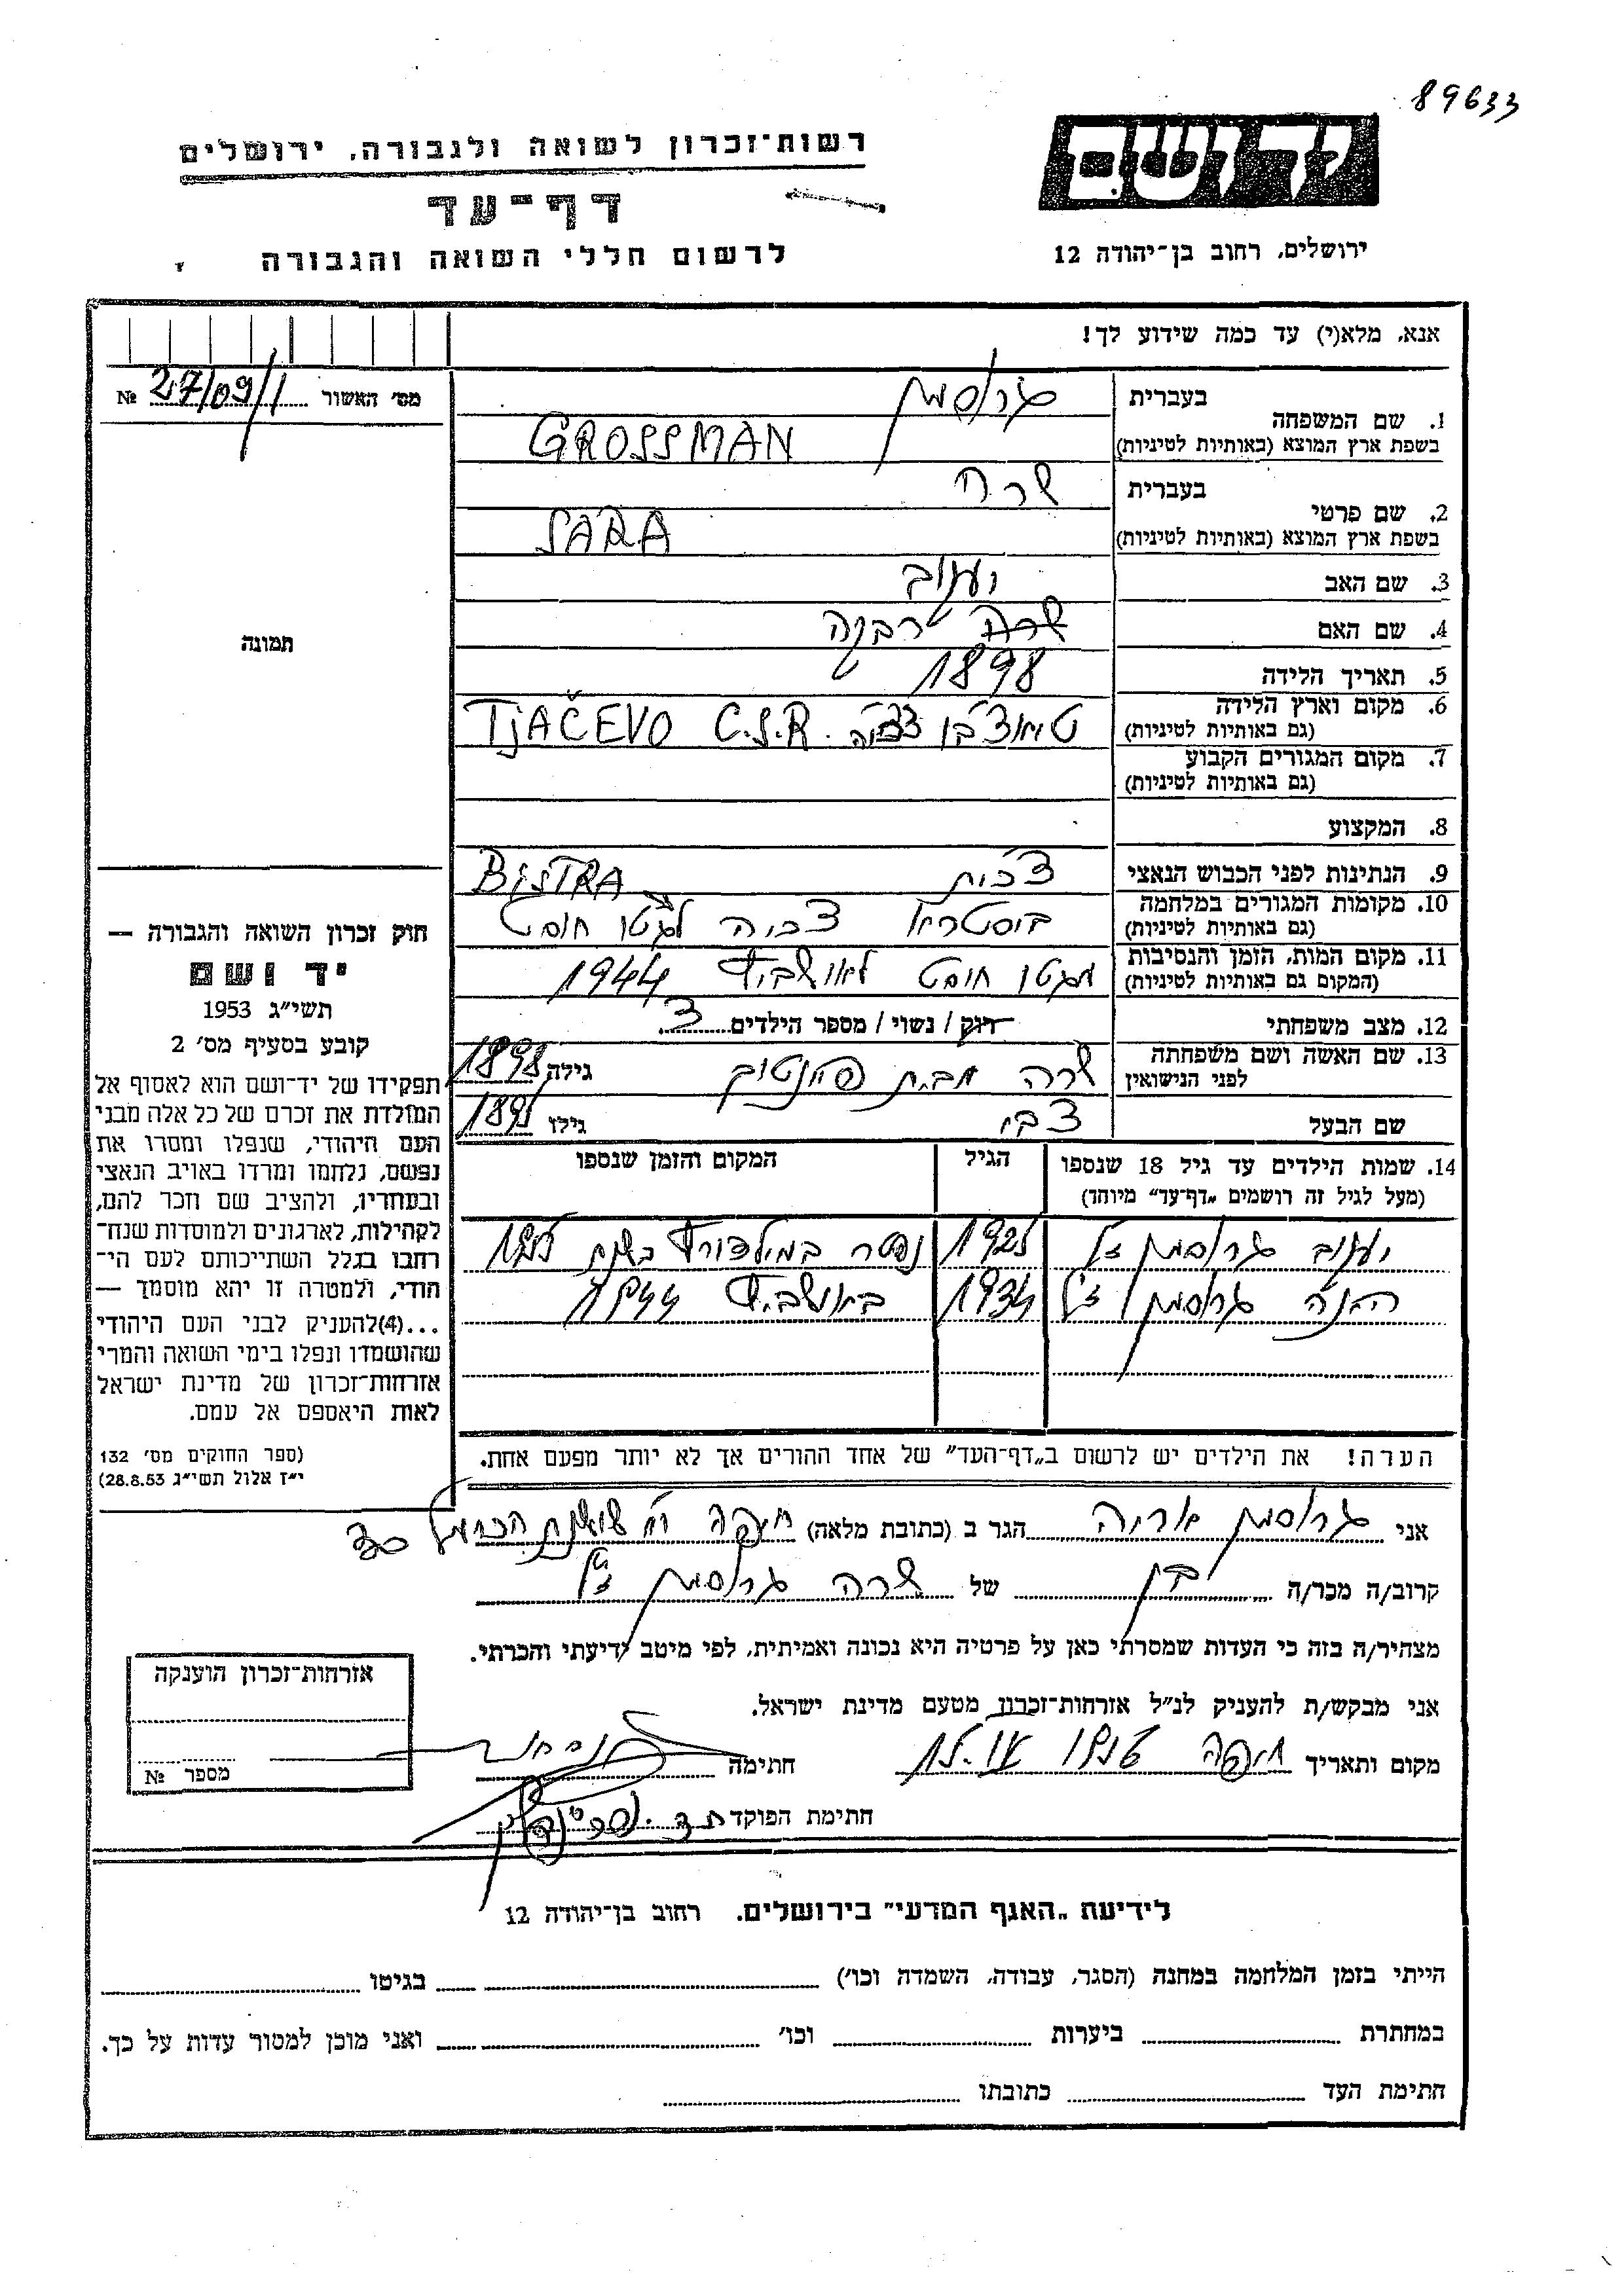 89633
יד ושם
רשות-זכרון לשואה ולגבורה, ירושלים
דף-עד
לרשום חללי השואה והגבורה
ירושלים, רחוב בן-יהודה 12
אנא, מלא(י) עד כמה שידוע לך!
מס' האשור 27/09/1 №
1. שם המשפחה
בעברית גרוסמן
בשפת ארץ המוצא (באותיות לטיניות) GROSSMAN
2. שם פרטי
בעברית שרה
בשפת ארץ המוצא (באותיות לטיניות) SARA
3. שם האב יעקב
4. שם האם שרה רבקה
5. תאריך הלידה 1898
6. מקום וארץ הלידה (גם באותיות לטיניות) צכיה TJAČEVO C.S.R.
7. מקום המגורים הקבוע (גם באותיות לטיניות)
8. המקצוע
9. הנתינות לפני הכבוש הנאצי צכית BISTRA
10. מקומות המגורים במלחמה (גם באותיות לטיניות) ביסטרא צכיה לגטו חוסט
11. מקום המות, הזמן והנסיבות (המקום גם באותיות לטיניות) מגטו חוסט לאושביץ 1944
12. מצב משפחתי רוק / נשוי / מספר הילדים 3
13. שם האשה ושם משפחתה לפני הנישואין שרה מבית גילה 1898
שם הבעל צבי גילו
14. שמות הילדים עד גיל 18 שנספו (מעל לגיל זה רושמים "דף-עד" מיוחד)
הגיל
המקום והזמן שנספו
יעקב גרוסמן ז"ל נפטר בשנת
גרוסמן ז"ל 1934 באושביץ 1944
הערה! את הילדים יש לרשום ב"דף-העד" של אחד ההורים אך לא יותר מפעם אחת.
תמונה
חוק זכרון השואה והגבורה —
יד ושם
תשי"ג 1953
קובע בסעיף מס' 2
תפקידו של יד-ושם הוא לאסוף אל
המולדת את זכרם של כל אלה מבני
העם היהודי, שנפלו ומסרו את
נפשם, נלחמו ומרדו באויב הנאצי
ובעוזריו, ולהציב שם וזכר להם,
לקהילות, לארגונים ולמוסדות שנח-
רבו בגלל השתייכותם לעם הי-
הודי, ולמטרה זו יהא מוסמך —
...(4)להעניק לבני העם היהודי
שהושמדו ונפלו בימי השואה והמרי
אזרחות-זכרון של מדינת ישראל
לאות היאספם אל עמם.
(ספר החוקים מס' 132
י"ז אלול תשי"ג 28.8.53)
אני גרוסמן אריה הגר ב (כתובת מלאה) חיפה
קרוב/ה מכר/ה בן של שרה גרוסמן ז"ל
מצהיר/ה בזה כי העדות שמסרתי כאן על פרטיה היא נכונה ואמיתית, לפי מיטב ידיעתי והכרתי.
אני מבקש/ת להעניק לנ"ל אזרחות-זכרון מטעם מדינת ישראל.
מקום ותאריך חיפה חתימה
חתימת הפוקד
אזרחות-זכרון הוענקה
מספר №
לידיעת "האגף המדעי" בירושלים, רחוב בן-יהודה 12
הייתי בזמן המלחמה במחנה (הסגר, עבודה, השמדה וכו') בגיטו
במחתרת ביערות וכו' ואני מוכן למסור עדות על כך.
חתימת העד כתובתו